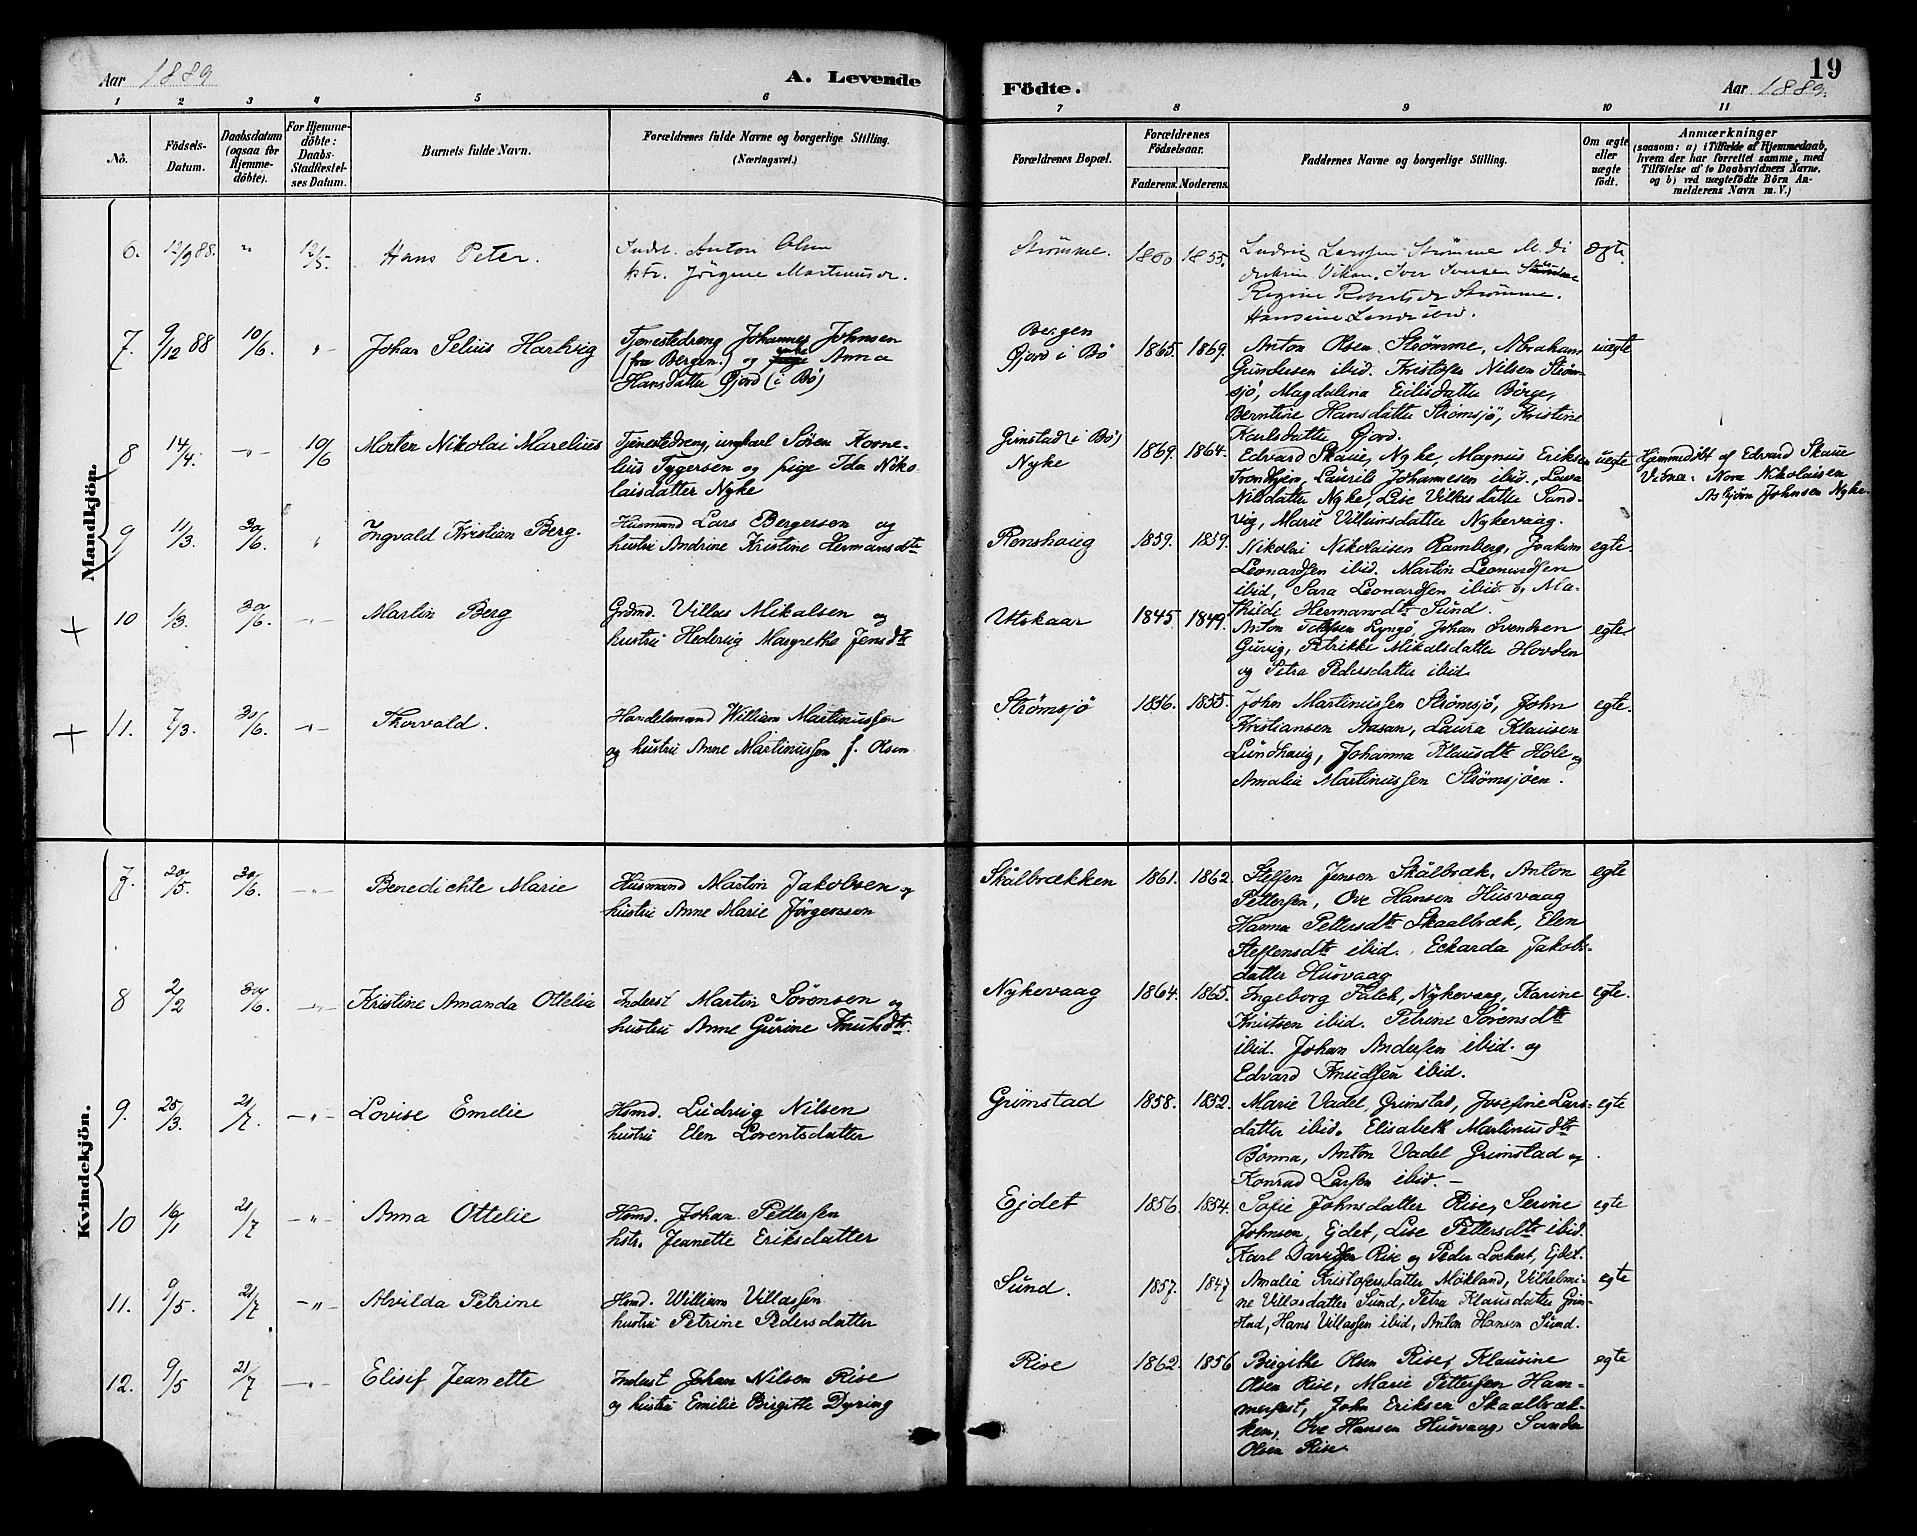 Aar 1889
A. Levende
Födte.
Aar 1889.
19
1 2 3 4 5 6 7 8 9 10 11
No.
Födsels-
Datum.
Daabsdatum
(ogsaa för
Hjemme-
döbte).
For Hjemme-
döbte:
Daabs-
Stadfæstel-
ses Datum.
Barnets fulde Navn.
Forældrenes fulde Navne og borgerlige Stilling.
(Næringsvei.)
Forældrenes Bopæl.
Forældrenes
Födselsaar.
Faderens. Moderens.
Faddernes Navne og borgerlige Stilling.
Om ægte
eller
uægte
födt.
Anmærkninger
(saasom: a) i Tilfælde af Hjemmedaab,
hvem der har forrettet samme, med
Tilföielse af to Daabsvidners Navne.
og b) ved uægtefödte Börn An-
melderens Navn m. V.)
Mandkjön.
6. 12/9 88. " 12/5. Hans Peter.
Indst. Anton Olsen
hstr. Jörgine Martinusdr.
Strømme. 1860 1855.
Ludvig Larssen Strømme M. Di
drikin Vikan. Iver Iversen Strømme
Regine Robertsdr Strømme.
Hansine ibid.
ægte.
7. 9/12 88 10/6. " Johan Selius Hartvig
Tjenestedreng Johannes Johnsen
(fra Bergen.) og pige Anna
Hansdatter Øjord (i Bö)
Bergen
Øjord i Bö
1865. 1869.
Anton Olsen Strømme, Abraham
Gundersen ibid. Kristofer Nilsen Ström-
sjö, Magdalina Eilisdatter Börge,
Berntine Hansdatter Strömsjö, Kristine
Karlsdatter Øjord.
uægte
8 14/4. -"- 10/6 Morten Nikolai Marelius
Tjenestedreng, ungkarl Søren Korne-
lius Tygersen og pige Ida Niko-
laisdatter Nyke
Grimstad (i Bö)
Nyke
1869. 1864.
Edvard Skaue, Nyke, Magnus Eriksen
Trondhjem, Laurits Johannesen ibid., Lava
Nilsdatter Nyke, Lise Villasdatter Sand-
vig, Marie Villumsdatter Nykevaag.
uegte
Hjemmedöbt af Edvard Skaue
Vidner: Nora Nikolaisen
Asbjörn Johnsen Nyke.
9 11/3. 30/6. " Ingvald Kristian Berg.
Husmand Lars Bergersen og
hustru Andrine Kristine Hermansdtr
Renshaug 1859. 1859.
Nikolai Nikolaisen Ramberg, Joakim
Leonardsen ibid. Martin Leonardsen
ibid, Sara Leonardsen ibid o, Ma-
thilde Hermansdtr Sund.
egte.
+ 10 1/3. 30/6. -"- Martin Berg
Grdmd. Villas Mikalsen og
hustru Hedevig Margrethe Jensdtr
Utskaar 1845 1849.
Anton Lyngö, Johan Svendsen
Guvig, Petrikke Mikalsdatter Hovden
og Petra Pedersdatter ibid.
egte.
+ 11. 7/3. 30/6. -"- Thorvald.
Handelsmand William Martinussen
og hustru Anne Martinussen f. Olsen
Strömsjö 1856. 1855.
John Martinussen Strömsjö, John
Kristiansen Aasan, Laura Klausen
Lundhaug, Johanna Klausdtr Hole og
Amalie Martinussen Strömsjöen.
egte.
Kvindekjön.
7. 20/5. 30/6. -"- Benedichte Marie
Husmand Martin Jakobsen og
hustru Anne Marie Jörgenssen
Skålbrækken 1861. 1862.
Steffen Jensen Skålbræk, Anton
Pettersen, Ove Hansen Husvaag
Hanna Pettersdtr Skaalbræk, Elen
Steffensdtr ibid. Eckarda Jakobs-
datter Husvaag
egte
8 2/2 30/6. -"- Kristine Amanda Ottelie
Inderst Martin Sörensen og
hustru Anne Gurine Knutsdtr.
Nykevaag 1864. 1865.
Ingeborg Falck, Nykevaag, Karine
Knutsen ibid. Petrine Sörensdtr
ibid. Johan Andersen ibid. og
Edvard Knudsen ibid.
egte.
9. 25/3. 21/7. -"- Lovise Emelie
Hsmd. Ludvig Nilsen
hustru Elen Lorentsdatter
Grimstad 1858. 1852.
Marie Vadel, Grimstad, Josefine Lars-
datter ibid. Elisabeth Martinusdtr
Bönna, Anton Vadel Grimstad og
Konrad Larsen ibid. –
egte
10 16/1 21/7 -"- Anna Ottelie
Hsmd. Johan Pettersen
hstr. Jeanette Eriksdatter
Ejdet 1856. 1854.
Sofie Johnsdatter Rise, Serine
Johnsen, Ejdet, Lise Pettersdtr ibid.
Karl Davidsen Rise og Peder Lockert, Ejdet.
egte
11. 9/5. 21/7 -"- Alvilda Petrine
Hsmd. William Villassen
hustru Petrine Pedersdatter
Sund. 1857. 1847
Amalia Kristofersdatter Mökland, Vilhelmi-
ne Villasdatter Sund, Petra Klausdatter Grim-
stad, Hans Villassen ibid, Anton Hansen Sund.
egte
12. 9/5 21/7 -"- Elisif Jeanette
Inderst Johan Nilsen Rise
og hustru Emilie Birgitte Dyring
Rise 1862. 1856
Birgithe Olsen Rise, Klausine
Olsen Rise, Marie Pettersen Ham-
merfest, John Eriksen Skaalbræk-
ken, Ove Hansen Husvaag, Sander
Olsen Rise
egte